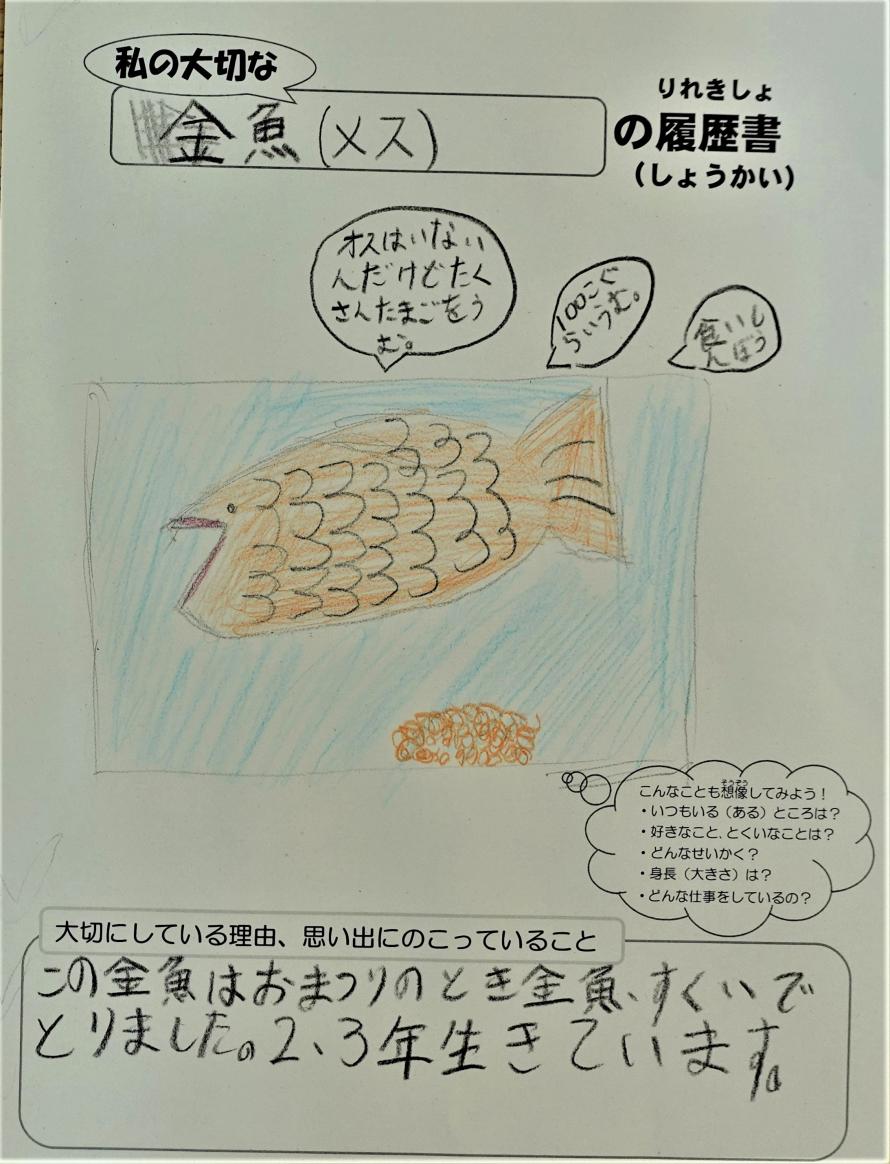 私の大切な
金魚(メス)
りれきしょ
の履歴書
(しょうかい)
オスはいない
んだけどたく
さんたまごをう
む。
100こぐ
らいうむ。
食いし
んぼう
そうぞう
こんなことも想像してみよう!
・いつもいる(ある)ところは?
・好きなこと、とくいなことは?
・どんなせいかく?
・身長(大きさ)は?
・どんな仕事をしているの?
大切にしている理由、思い出にのこっていること
この金魚はおまつりのとき金魚、すくいで
とりました。2、3年生きています。